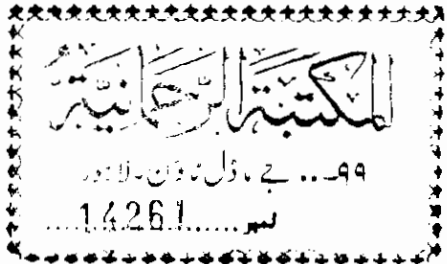 المكتبة الرحمانية
۹۹... جے ماڈل ٹاؤن۔ لاہور
نمبر.....14261